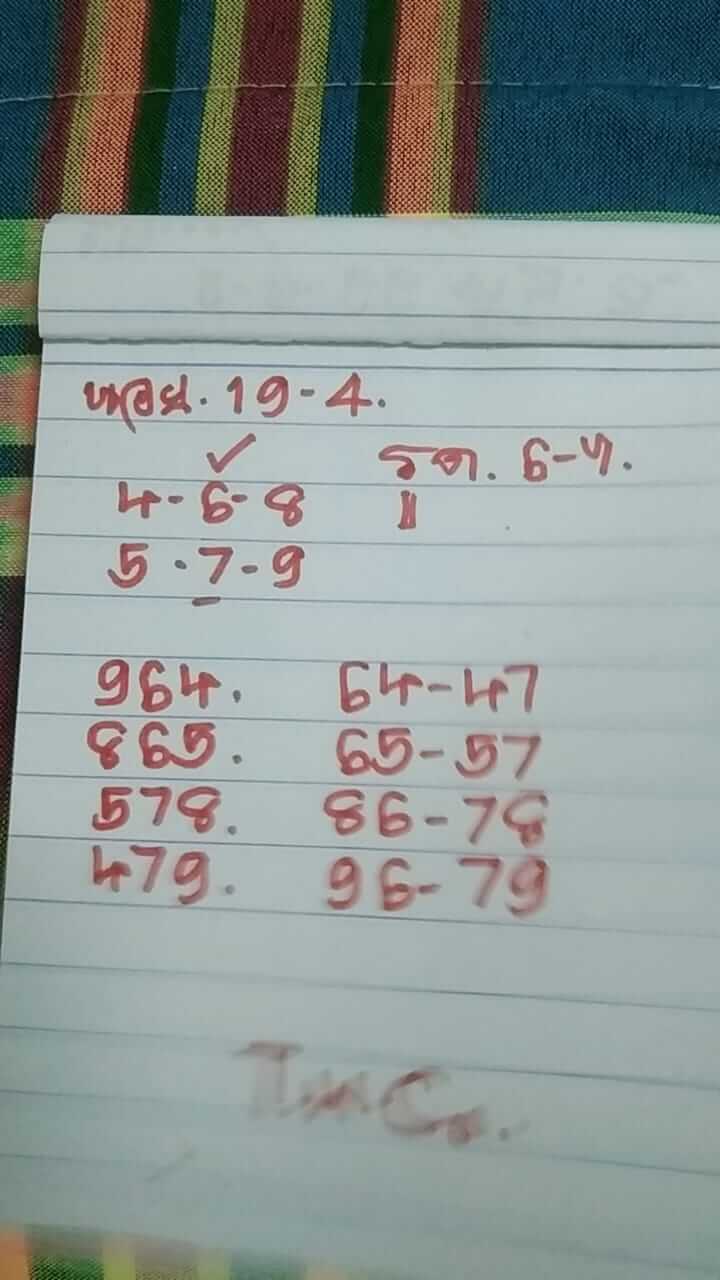 ฮานอย. 19-4.
4-6-8 รูด. 6-7.
5-7-9
964. 64-47
865. 65-57
578. 86-78
479. 96-79